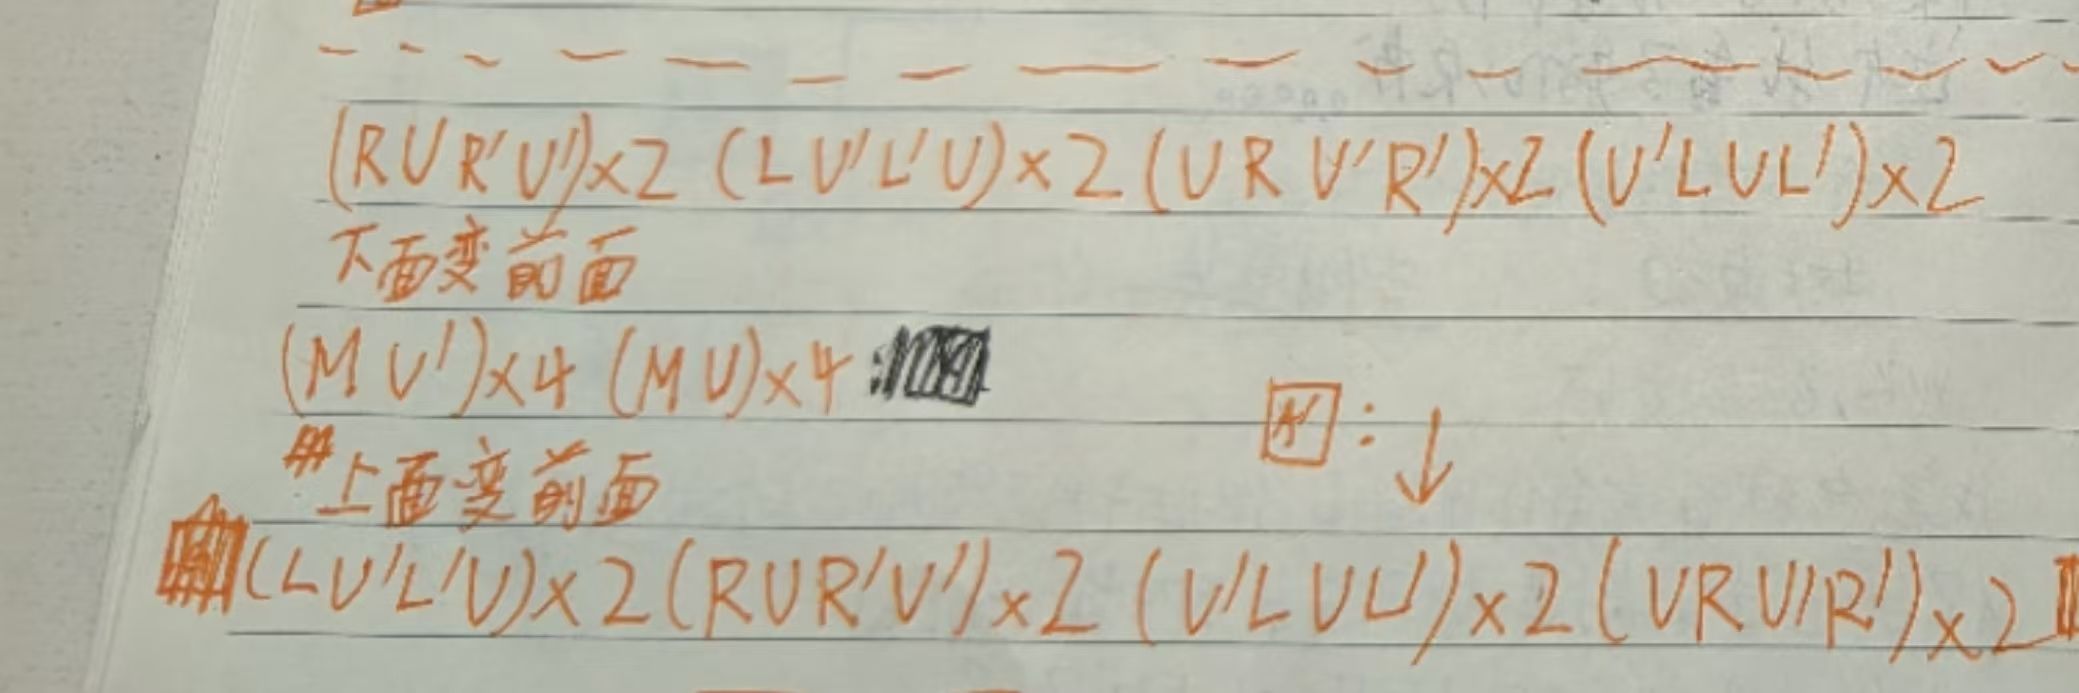 (RUR'U')×2 (LU'L'U)×2 (URU'R')×2 (U'LUL')×2
下面变前面
(MU')×4 (MU)×4
: ↓
上面变前面
(LU'L'U)×2 (RUR'U')×2 (U'LUL')×2 (URU'R')×2